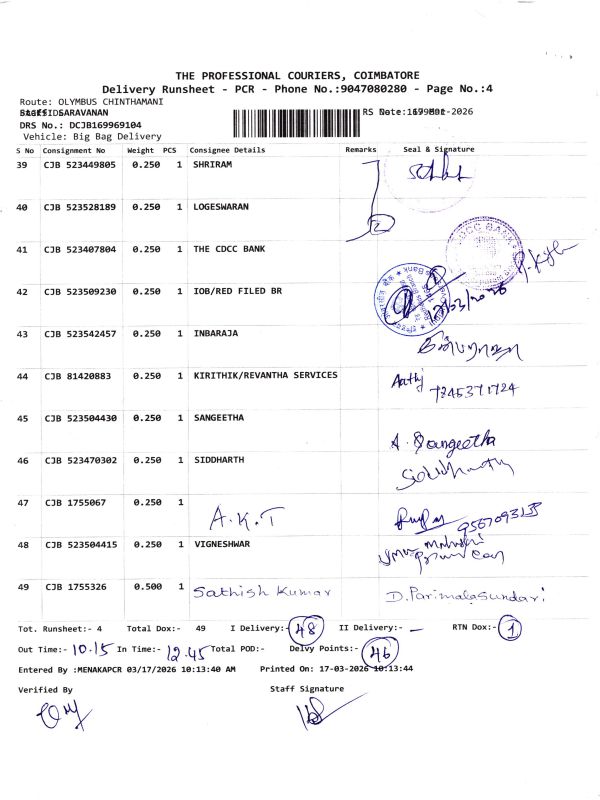 THE PROFESSIONAL COURIERS, COIMBATORE
Delivery Runsheet - PCR - Phone No.:9047080280 - Page No.:4
Route: OLYMBUS CHINTHAMANI
SARAVANAN
RS Date: -2026
DRS No.: DCJB169969104
Vehicle: Big Bag Delivery
S No Consignment No Weight PCS Consignee Details Remarks Seal & Signature
39 CJB 523449805 0.250 1 SHRIRAM
40 CJB 523528189 0.250 1 LOGESWARAN
2
41 CJB 523407804 0.250 1 THE CDCC BANK
42 CJB 523509230 0.250 1 IOB/RED FILED BR
43 CJB 523542457 0.250 1 INBARAJA
44 CJB 81420883 0.250 1 KIRITHIK/REVANTHA SERVICES
45 CJB 523504430 0.250 1 SANGEETHA A. Sangeetha
46 CJB 523470302 0.250 1 SIDDHARTH Siddharth
47 CJB 1755067 0.250 1 A.K.T
48 CJB 523504415 0.250 1 VIGNESHWAR
49 CJB 1755326 0.500 1 Sathish Kumar D. Parimalasundari
Tot. Runsheet:- 4 Total Dox:- 49 I Delivery:- 48 II Delivery:- – RTN Dox:- 1
Out Time:- 10.15 In Time:- 12.45 Total POD:- Delvy Points:- 46
Entered By :MENAKAPCR 03/17/2026 10:13:40 AM Printed On: 17-03-2026 10:13:44
Verified By Staff Signature